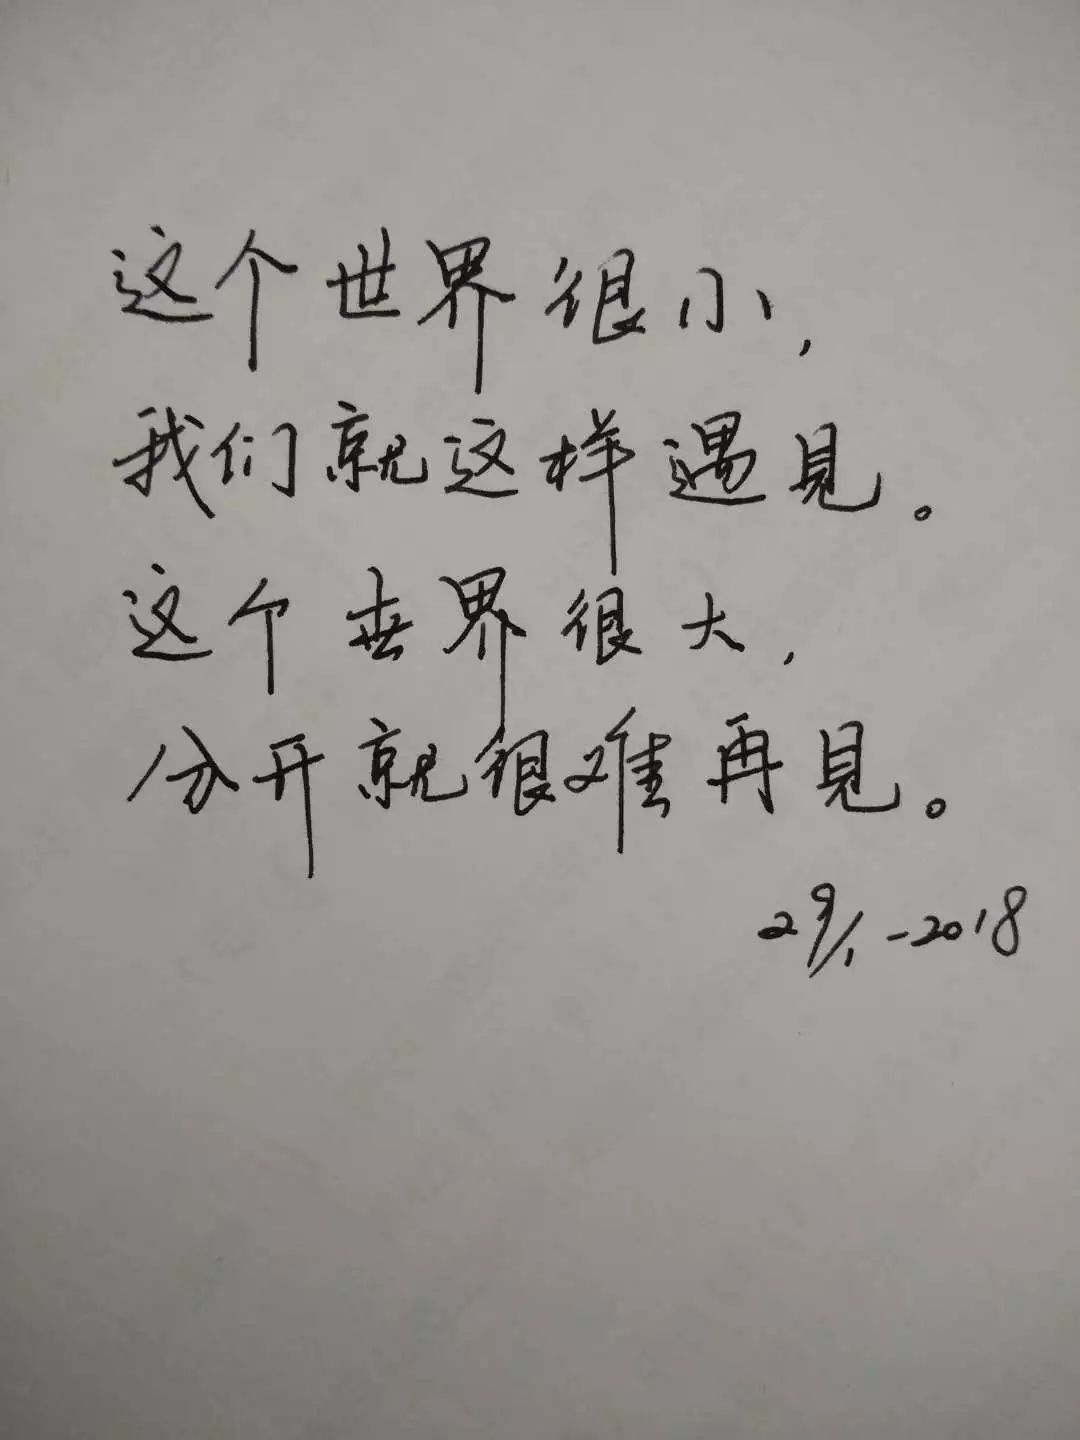 这个世界很小,
我们就这样遇見。
这个世界很大,
分开就很难再見。
29/1-2018